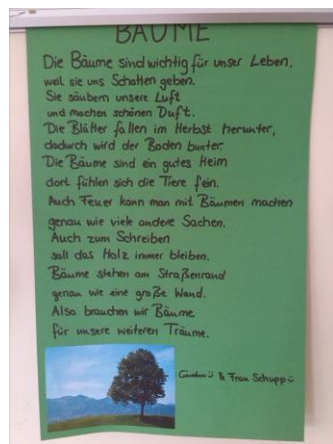 BÄUME
Die Bäume sind wichtig für unser Leben,
weil sie uns Schatten geben.
Sie säubern unsere Luft
und machen schönen Duft.
Die Blätter fallen im Herbst herunter,
dadurch wird der Boden bunter.
Die Bäume sind ein gutes Heim
dort fühlen sich die Tiere fein.
Auch Feuer kann man mit Bäumen machen
genau wie viele andere Sachen.
Auch zum Schreiben
soll das Holz immer bleiben.
Bäume stehen am Straßenrand
genau wie eine große Wand.
Also brauchen wir Bäume
für unsere weiteren Träume.
& Frau Schupp